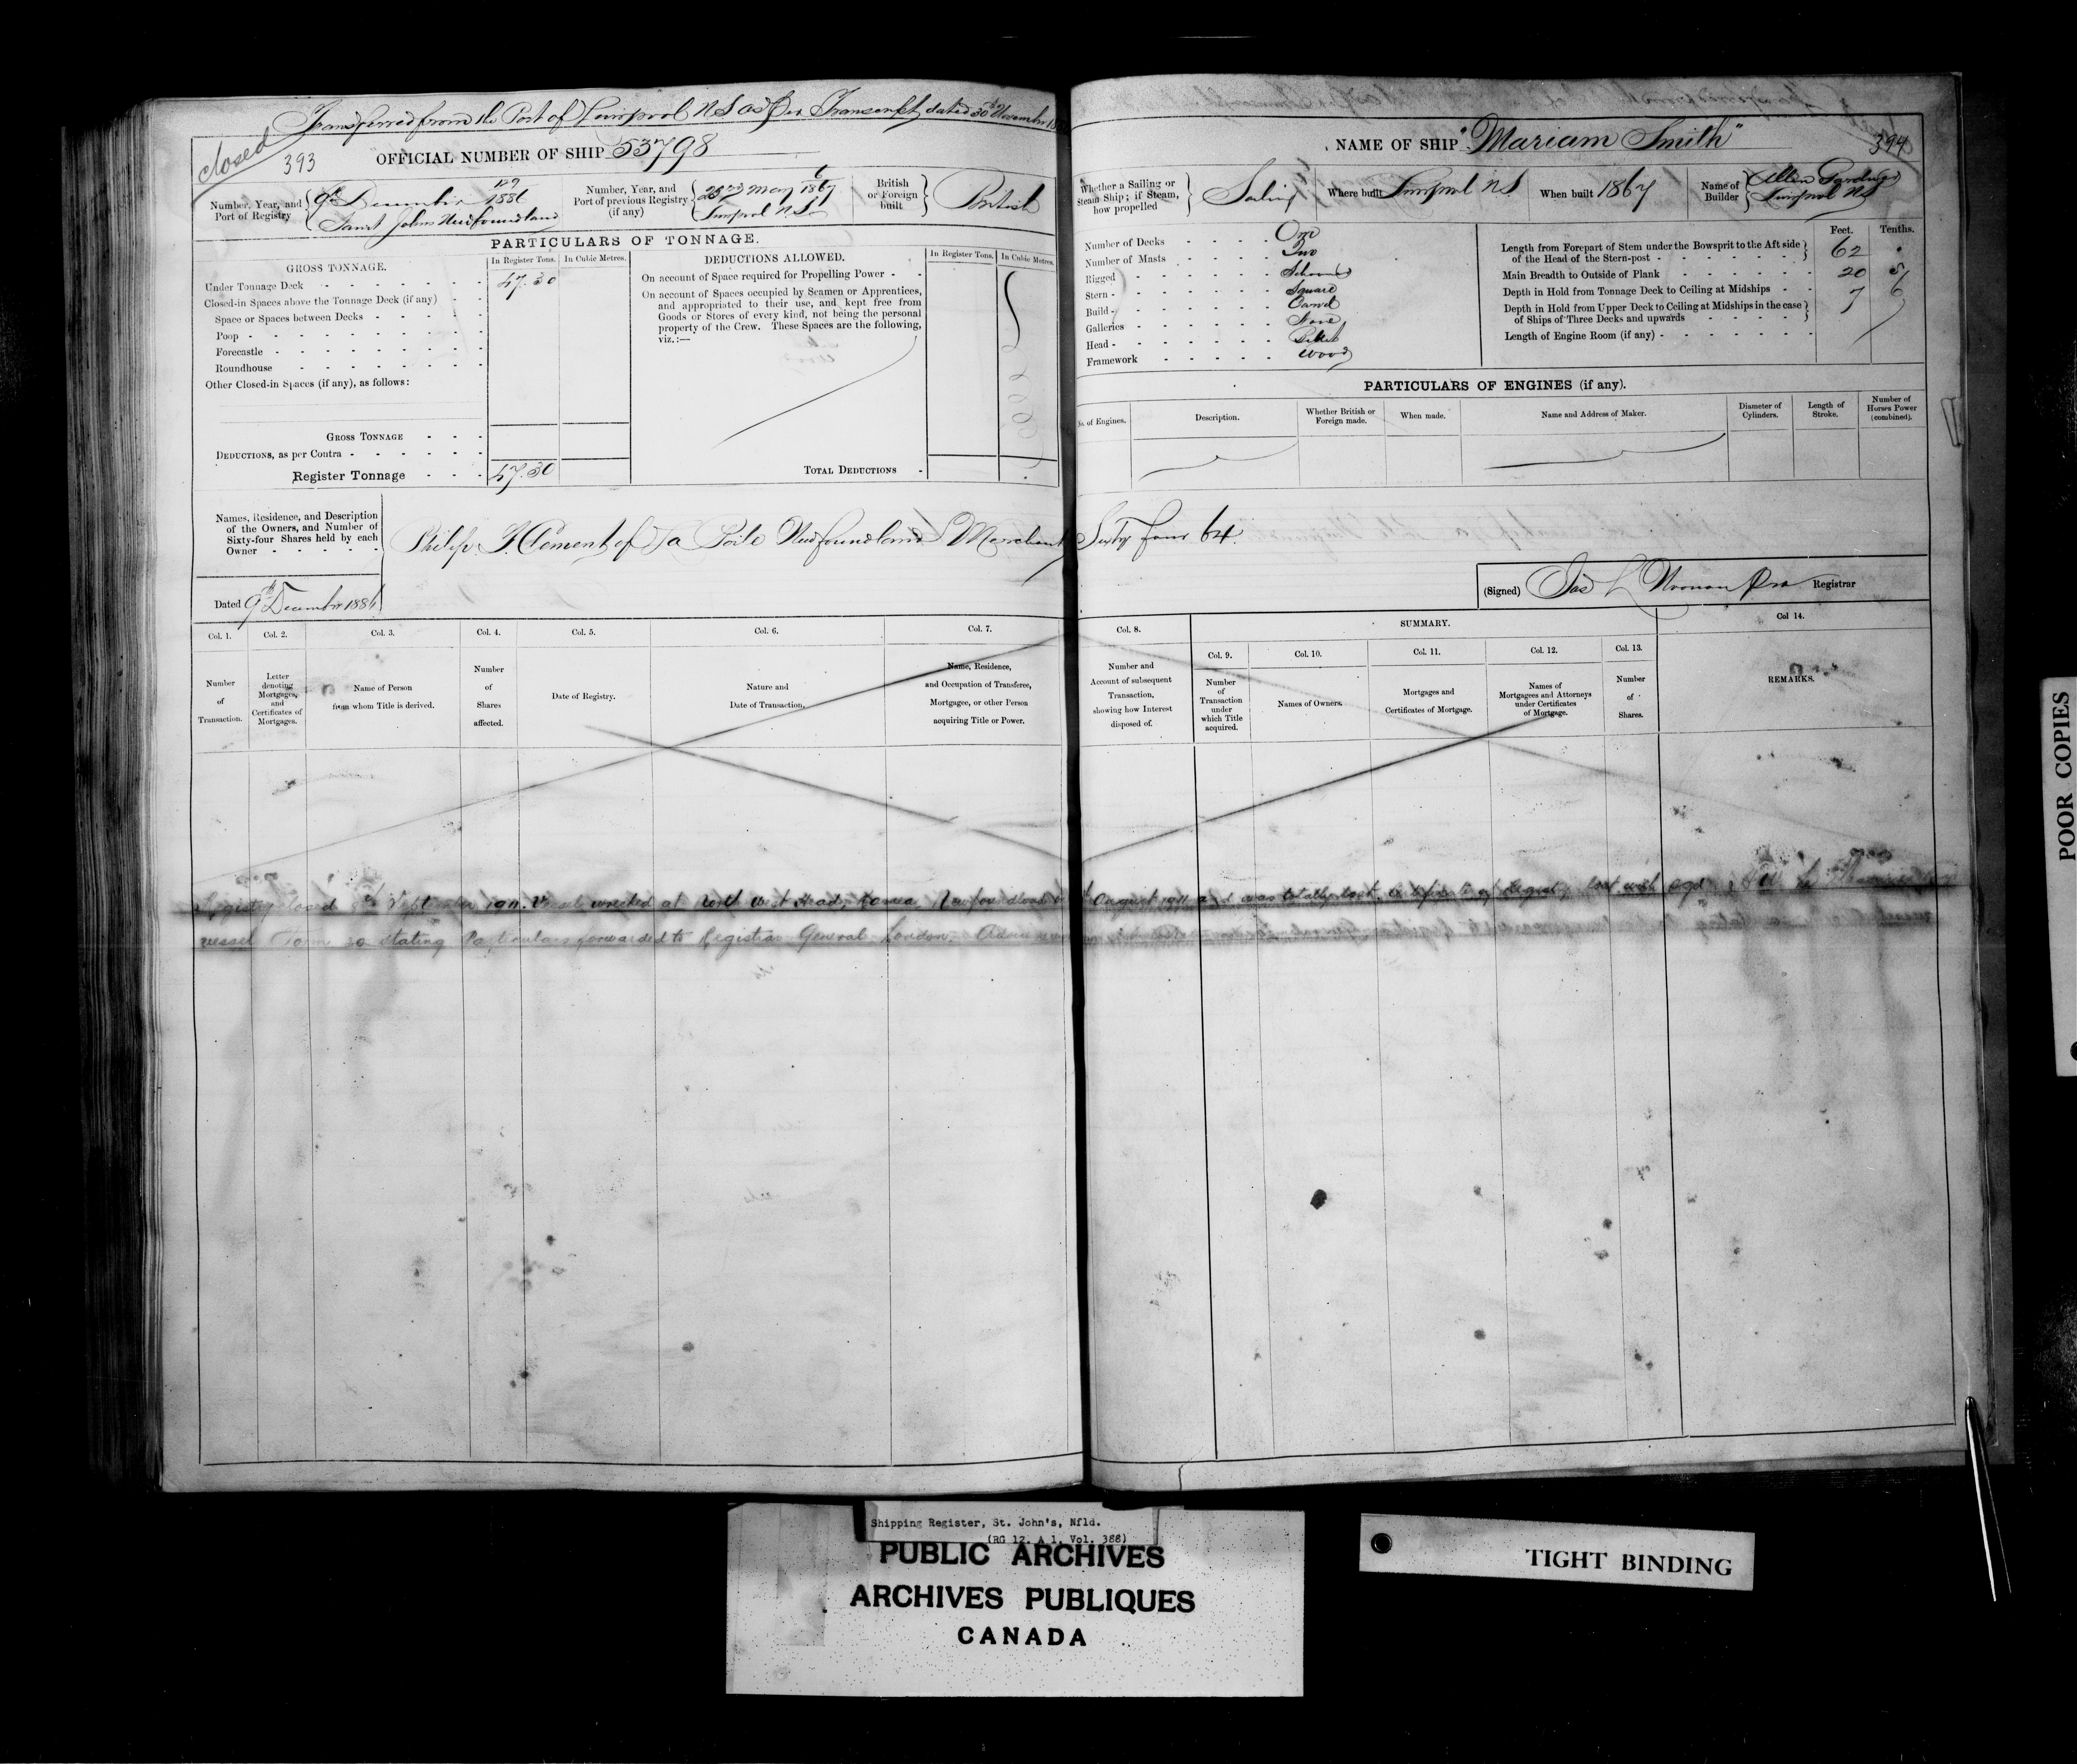 Transferred from the Port of Liverpool N S as per Transcript dated 30th November
closed
393
OFFICIAL NUMBER OF SHIP 53798
Number, Year, and Port of Registry
129
9th December 1886
Saint Johns Newfoundland
Number, Year, and Port of previous Registry (if any)
6
23rd May 1867
Liverpool N.S.
British or Foreign built
British
PARTICULARS OF TONNAGE.
GROSS TONNAGE.
In Register Tons.
In Cubic Metres.
DEDUCTIONS ALLOWED.
In Register Tons.
In Cubic Metres.
Under Tonnage Deck 47.30
Closed-in Spaces above the Tonnage Deck (if any)
Space or Spaces between Decks
Poop
Forecastle
Roundhouse
Other Closed-in Spaces (if any), as follows:
GROSS TONNAGE
DEDUCTIONS, as per Contra
Register Tonnage 47.30
On account of Space required for Propelling Power
On account of Spaces occupied by Seamen or Apprentices,
and appropriated to their use, and kept free from
Goods or Stores of every kind, not being the personal
property of the Crew. These Spaces are the following,
viz.:—
TOTAL DEDUCTIONS
Names, Residence, and Description
of the Owners, and Number of
Sixty-four Shares held by each
Owner
Philip F. Clement of La Poile Newfoundland Merchant Sixty four 64
Dated 9th December 1886
NAME OF SHIP "Mariam Smith"
394
Whether a Sailing or
Steam Ship; if Steam,
how propelled
Sailing
Where built Liverpool N S
When built 1867
Name of Builder
Allen Gardner
Liverpool NS
Number of Decks One
Number of Masts Two
Rigged Schooner
Stern Square
Build Carvel
Galleries None
Head Billet
Framework Wood
Feet. Tenths.
Length from Forepart of Stem under the Bowsprit to the Aft side
of the Head of the Stern-post 62 .
Main Breadth to Outside of Plank 20 5
Depth in Hold from Tonnage Deck to Ceiling at Midships 7 6
Depth in Hold from Upper Deck to Ceiling at Midships in the case
of Ships of Three Decks and upwards
Length of Engine Room (if any)
PARTICULARS OF ENGINES (if any).
No. of Engines.
Description.
Whether British or Foreign made.
When made.
Name and Address of Maker.
Diameter of Cylinders.
Length of Stroke.
Number of Horses Power (combined).
(Signed) Jas L Noonan Pro Registrar
Col. 1. Col. 2. Col. 3. Col. 4. Col. 5. Col. 6. Col. 7. Col. 8.
SUMMARY.
Col. 9. Col. 10. Col. 11. Col. 12. Col. 13.
Col 14.
Number of Transaction.
Letter denoting Mortgages, and Certificates of Mortgages.
Name of Person from whom Title is derived.
Number of Shares affected.
Date of Registry.
Nature and Date of Transaction.
Name, Residence, and Occupation of Transferee, Mortgagee, or other Person acquiring Title or Power.
Number and Account of subsequent Transaction, showing how Interest disposed of.
Number of Transaction under which Title acquired.
Names of Owners.
Mortgages and Certificates of Mortgage.
Names of Mortgagees and Attorneys under Certificates of Mortgage.
Number of Shares.
REMARKS.
Registry closed September 1911. Vessel wrecked at North West Head, Ramea Newfoundland August 1911 and was totally lost. Certificate of Registry lost with
vessel Form 20 stating Particulars forwarded to Registrar General London.
POOR COPIES
Shipping Register, St. John's, Nfld.
(RG 12, A 1, Vol. 388)
PUBLIC ARCHIVES
ARCHIVES PUBLIQUES
CANADA
TIGHT BINDING